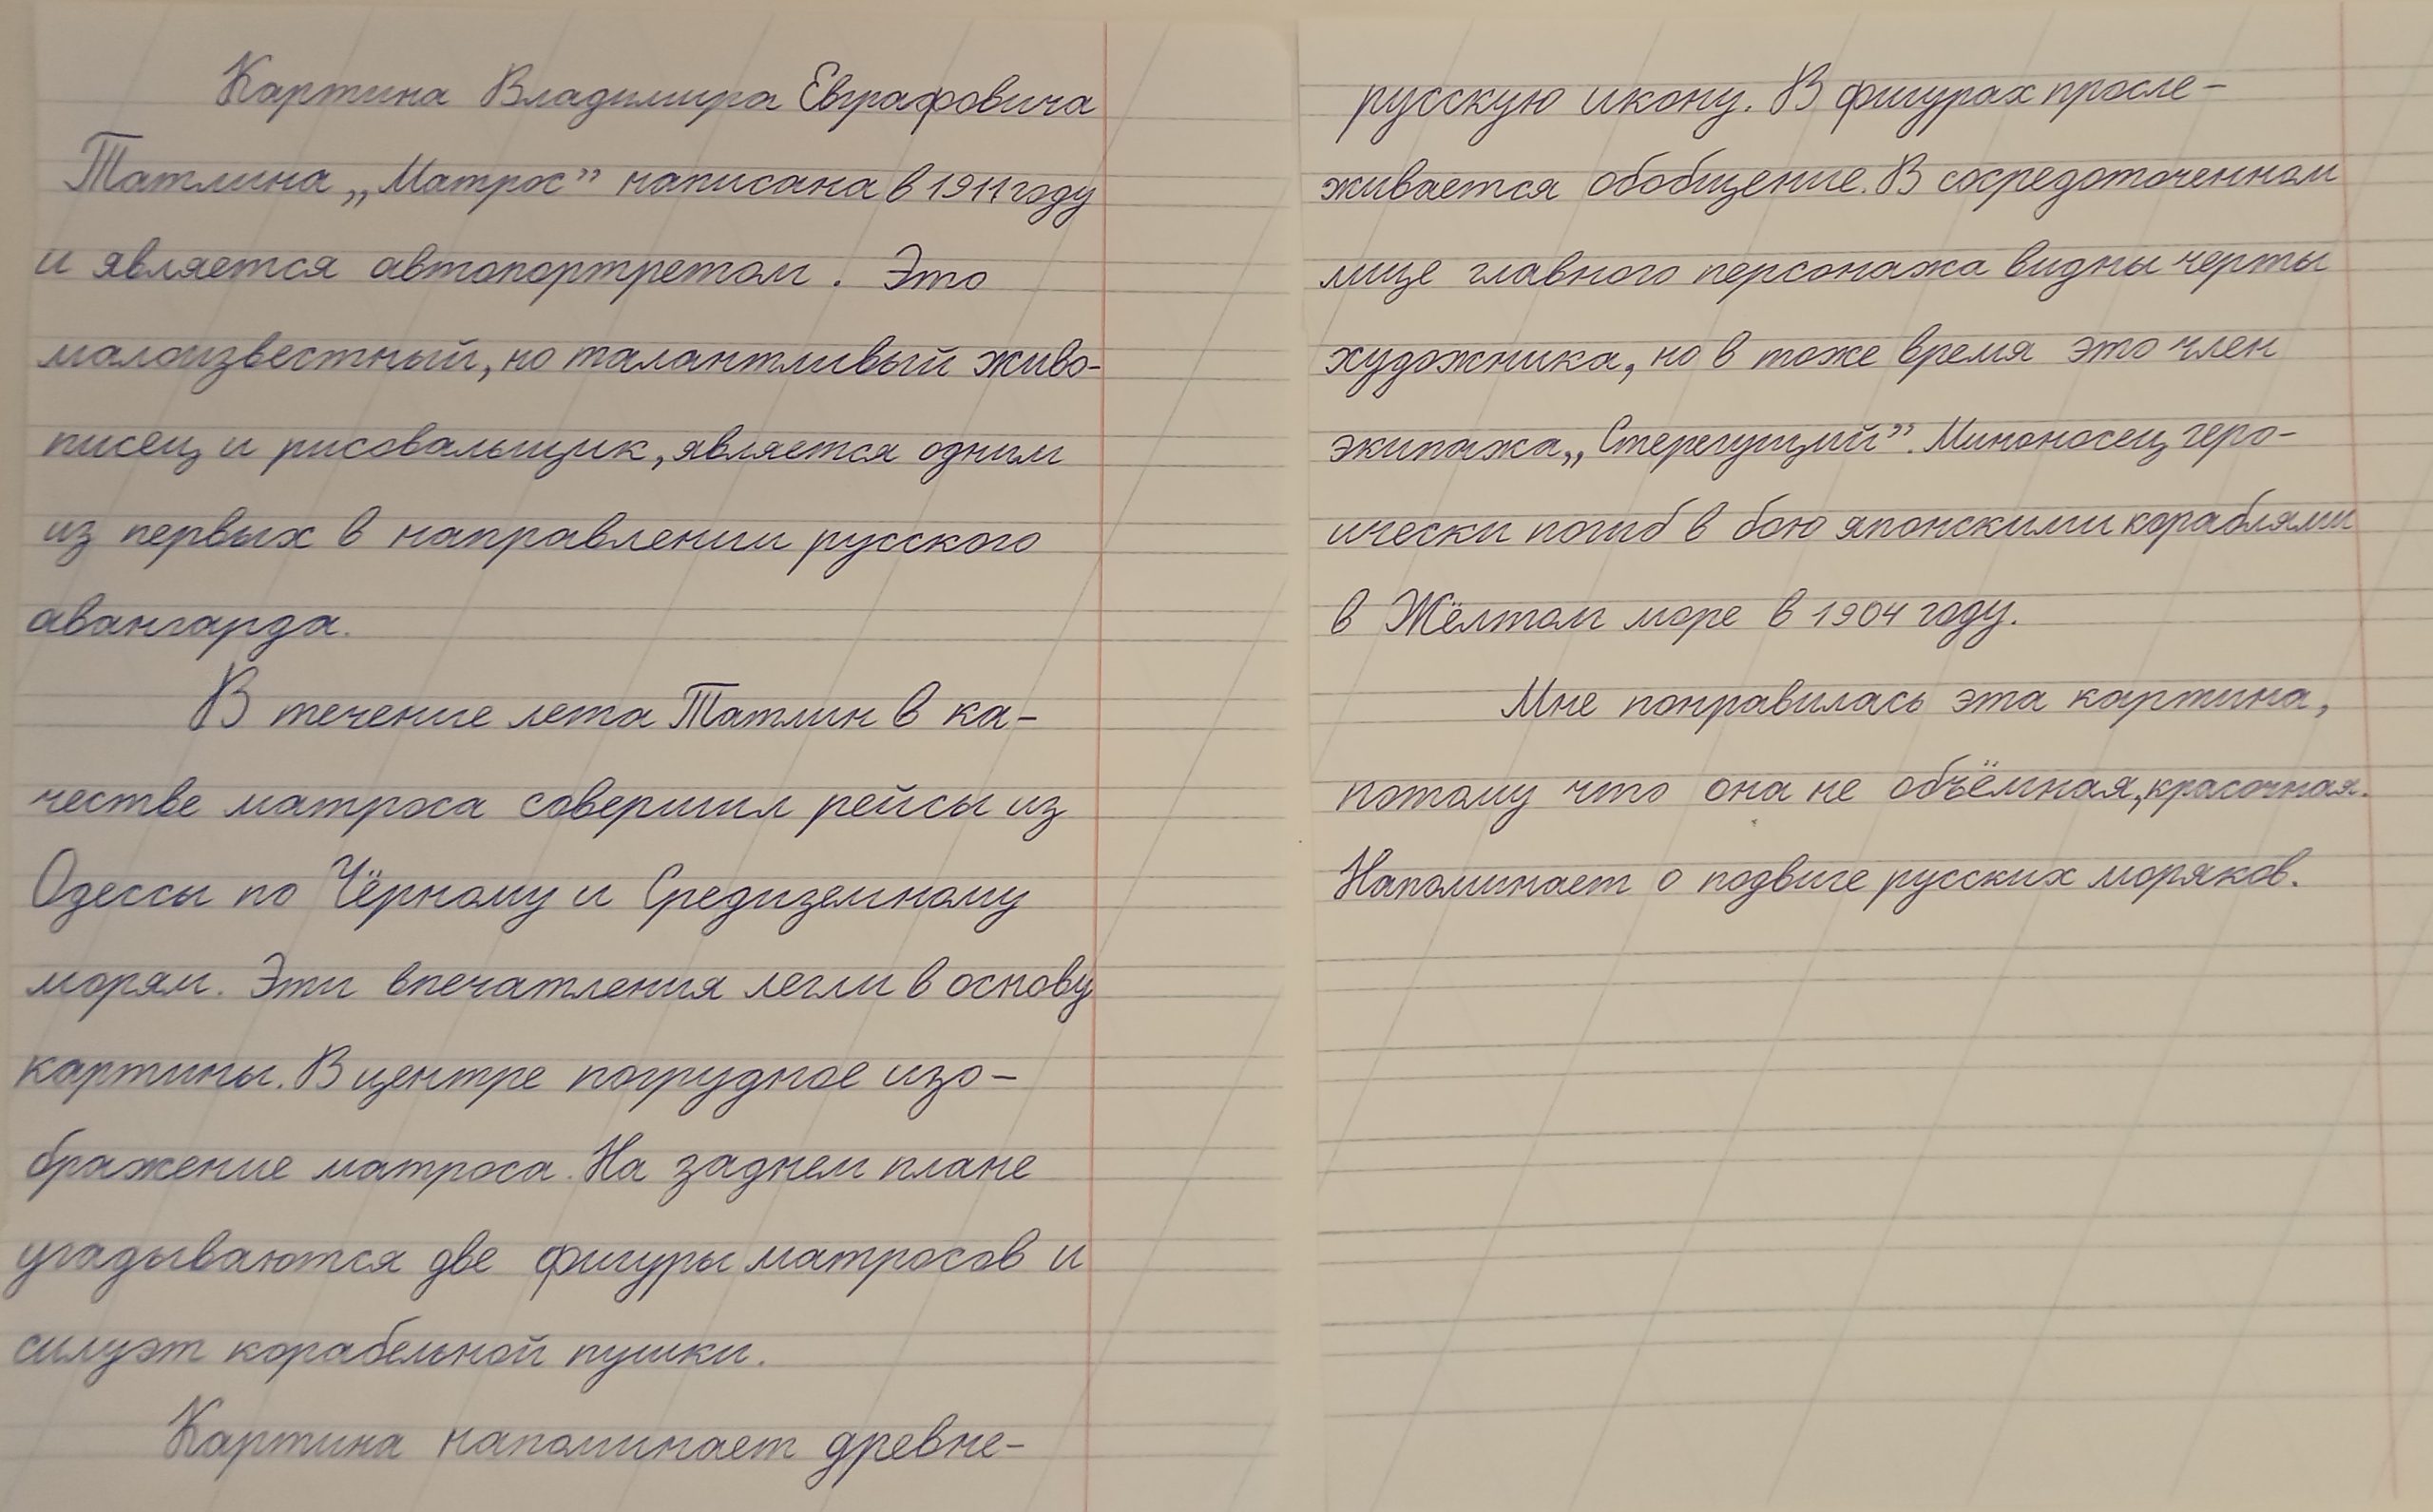 Картина Владимира Евграфовича
Татлина „Матрос” написана в 1911 году
и является автопортретом. Это
малоизвестный, но талантливый живо-
писец и рисовальщик, является одним
из первых в направлении русского
авангарда.
В течение лета Татлин в ка-
честве матроса совершил рейсы из
Одессы по Чёрному и Средиземному
морям. Эти впечатления легли в основу
картины. В центре погрудное изо-
бражение матроса. На заднем плане
угадываются две фигуры матросов и
силуэт корабельной пушки.
Картина напоминает древне-
русскую икону. В фигурах просле-
живается обобщение. В сосредоточенном
лице главного персонажа видны черты
художника, но в тоже время это член
экипажа „Стерегущий”. Миноносец геро-
ически погиб в бою японскими кораблями
в Жёлтом море в 1904 году.
Мне понравилась эта картина,
потому что она не объёмная, красочная.
Напоминает о подвиге русских моряков.